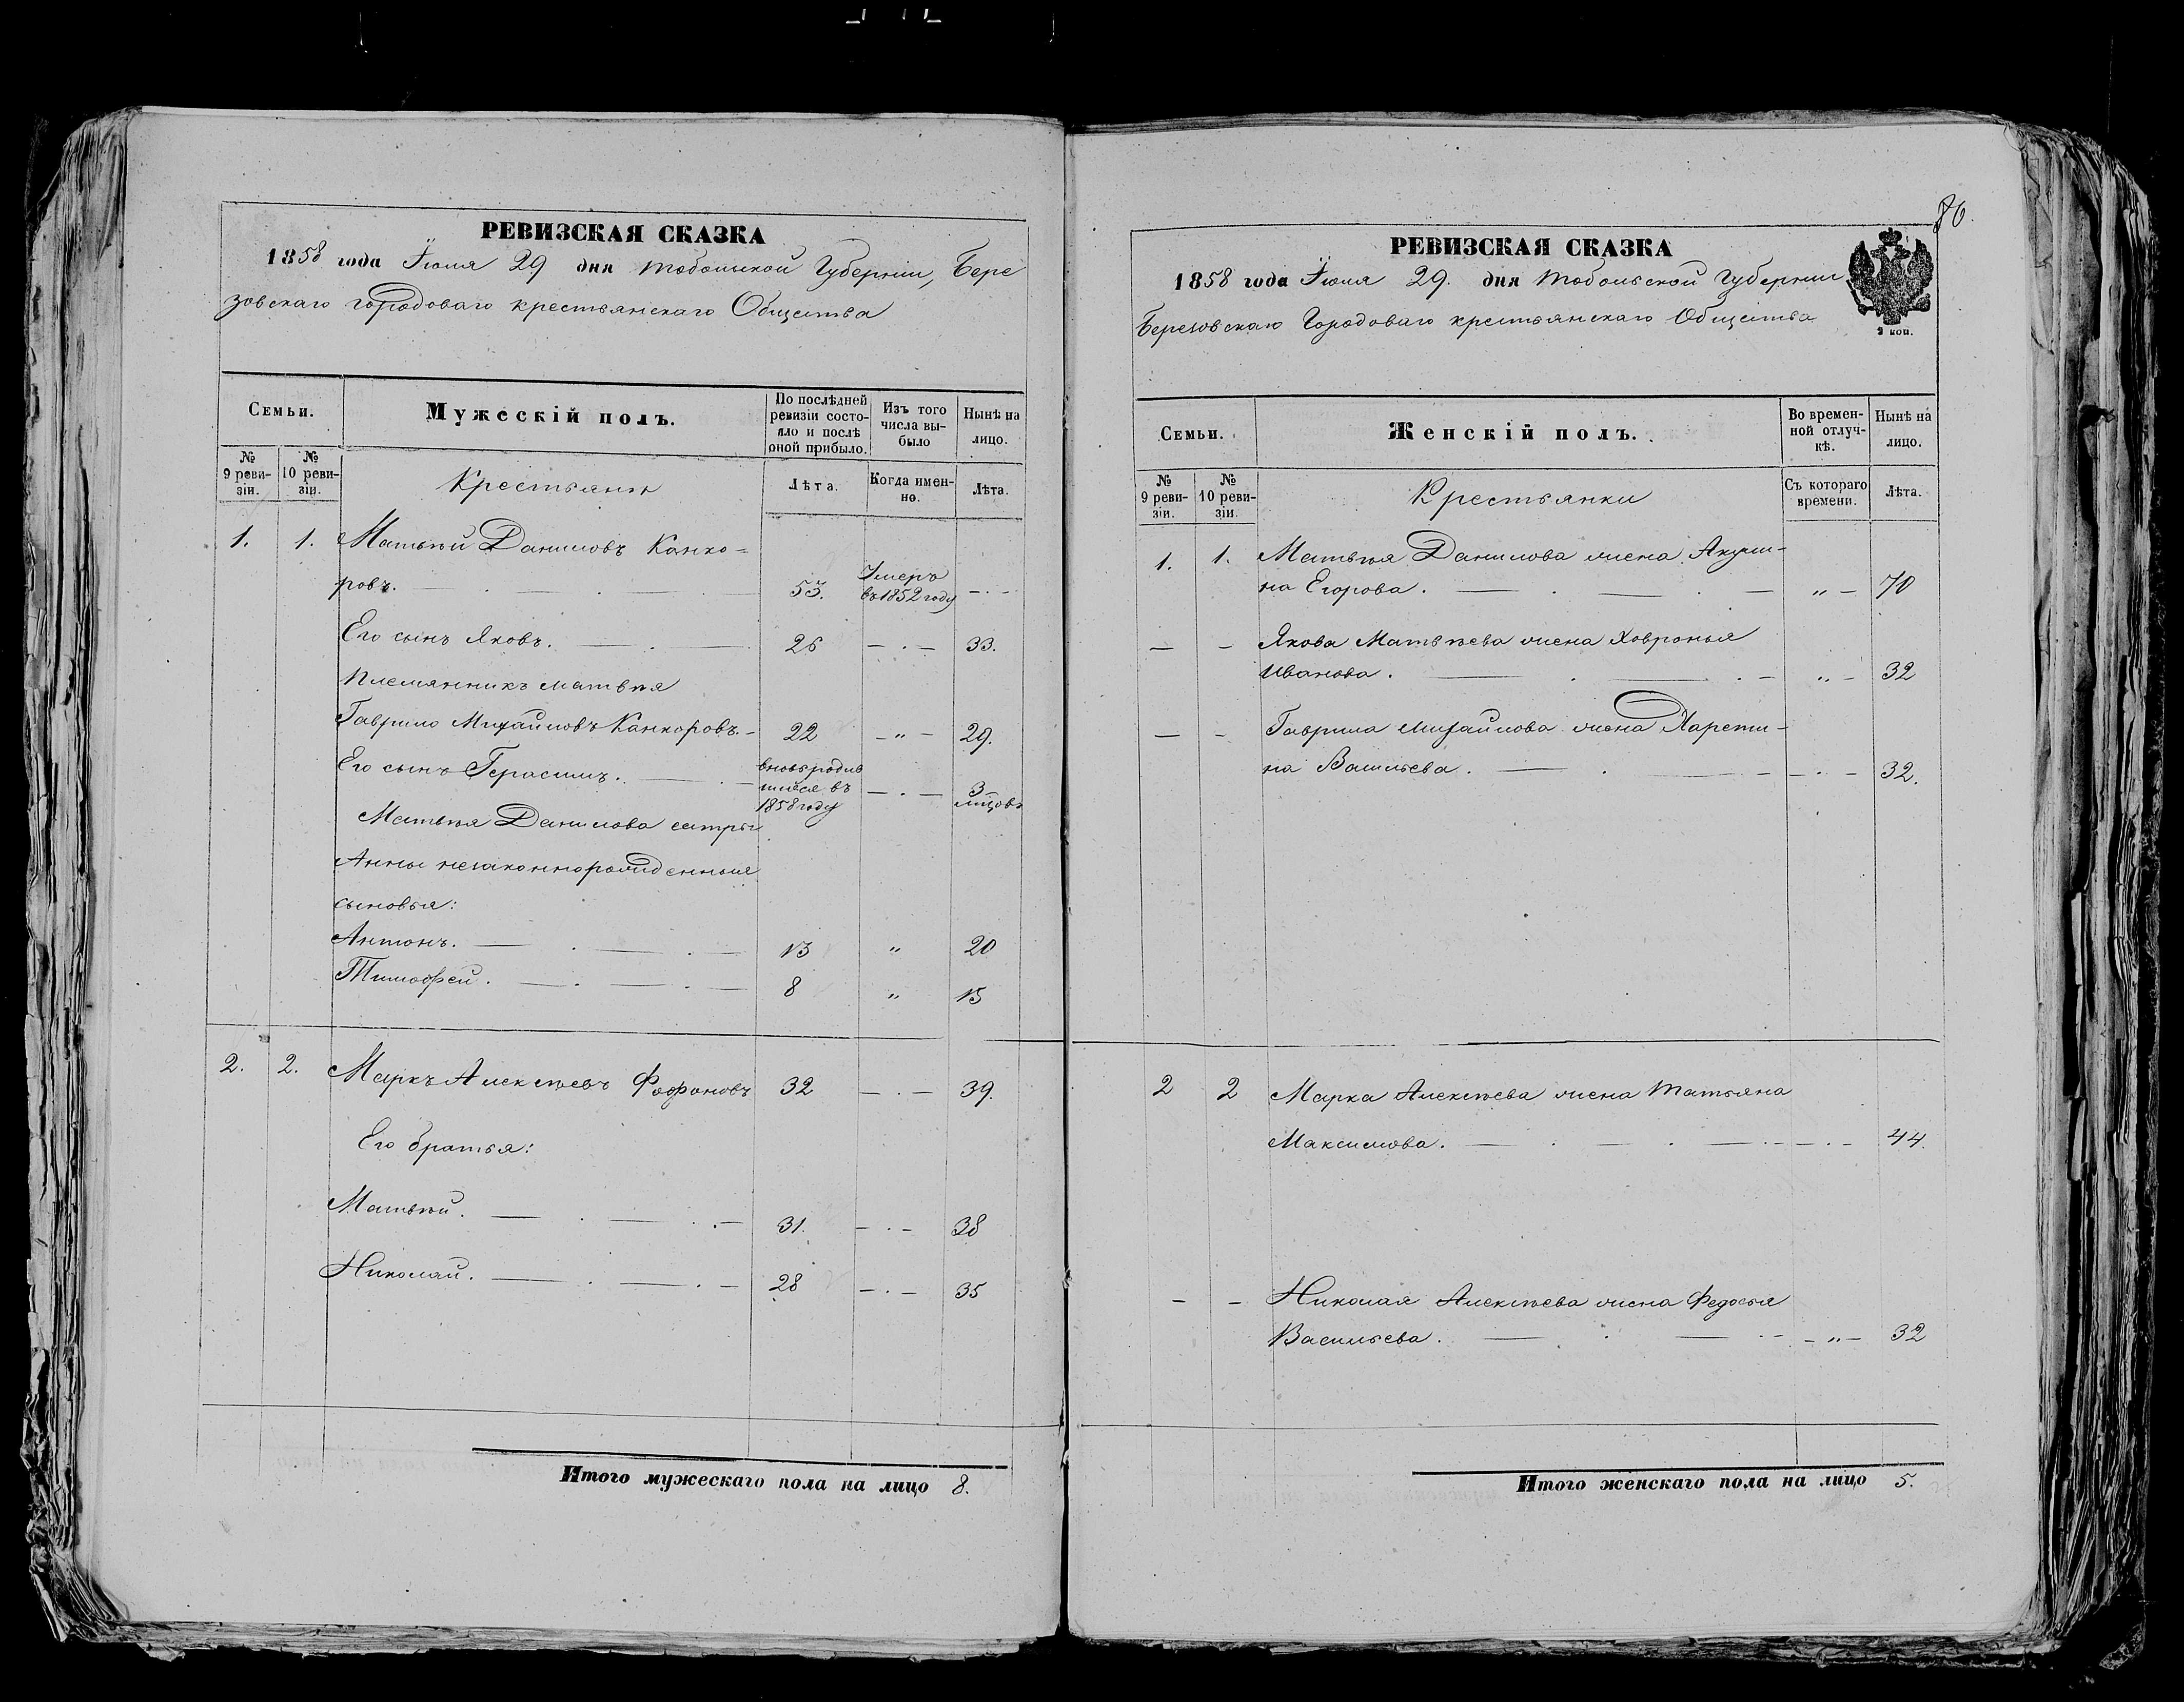 РЕВИЗСКАЯ СКАЗКА
1858 года Июня 29 дня Тобольской Губернии, Бере
зовскаго городоваго крестьянскаго Общества
Семьи.
Мужескій полъ.
По послѣдней ревизіи состо-
яло и послѣ оной прибыло.
Изъ того числа вы-
было
Нынѣ на лицо.
№ 9 реви-
зіи.
№ 10 реви-
зіи.
Крестьяне
Лѣта.
Когда имен-
но.
Лѣта.
1. 1. Матвѣй Даниловъ Канко-
ровъ. 53. Умеръ въ 1852 году
Его сынъ Яковъ. 26 33.
Племянникъ Матвѣя
Гаврило Михайловъ Канкоровъ. 22 " 29.
Его сынъ Герасимъ. вновь родив
шійся въ 1858 году 3
Матвѣя Данилова сестры
Анны незаконнорожденныя
сыновья:
Антонъ. 13 " 20
Тимофей. 8 " 15
2. 2. Маркъ Алексѣевъ Фофоновъ 32 39.
Его братья:
Матвѣй. 31. 38
Николай. 28 35
Итого мужескаго пола на лицо 8.
86.
РЕВИЗСКАЯ СКАЗКА
1858 года Июня 29. дня Тобольской Губернии
Березовскаго Городоваго крестьянскаго Общества
3 коп.
Семьи.
Женскій полъ.
Во времен-
ной отлуч-
кѣ.
Нынѣ на лицо.
№ 9 реви-
зіи.
№ 10 реви-
зіи.
Крестьянки
Съ котораго времени.
Лѣта.
1. 1. Матвѣя Данилова жена Акули-
на Егорова. " 70
Якова Матвѣева жена Ховронья
Иванова. " 32
Гаврила Михайлова жена Харети-
на Васильева. 32.
2 2 Марка Алексѣева жена Татьяна
Максимова. 44.
Николая Алексѣева жена Федосья
Васильева. " 32
Итого женскаго пола на лицо 5.